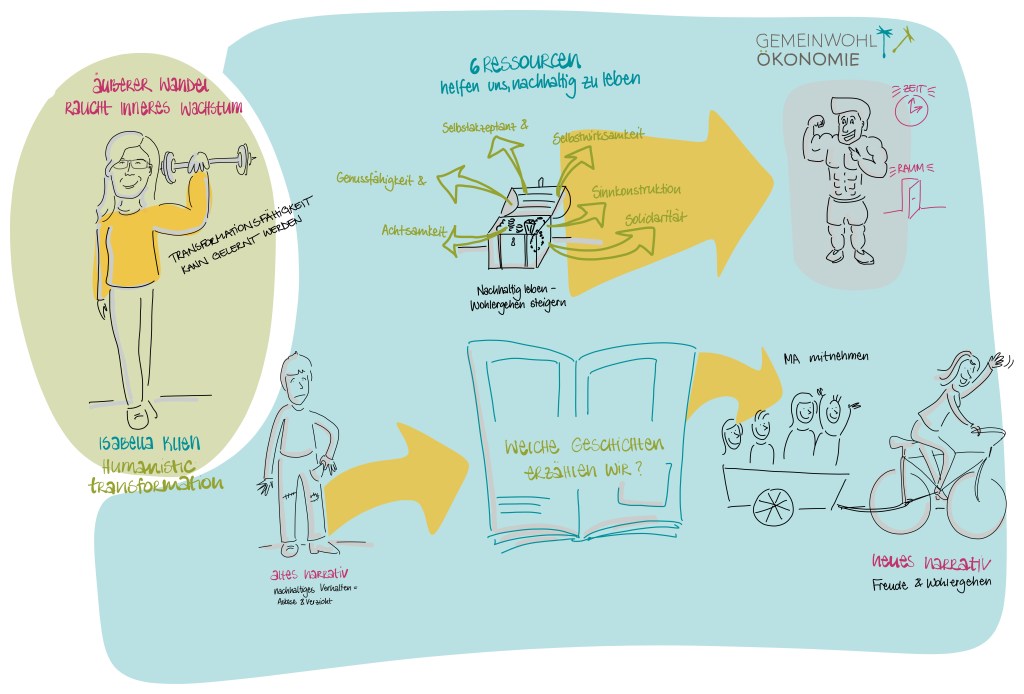 ÄUßERER WANDEL
RAUCHT INNERES WACHSTUM
TRANSFORMATIONSFÄHIGKEIT
KANN GELERNT WERDEN
ISABELLA KLIEN
Humanistic
transformation
6 RESSOURCEN
helfen uns, nachhaltig zu leben
Selbstakzeptanz &
Selbstwirksamkeit
Genussfähigkeit &
Sinnkonstruktion
Achtsamkeit
Solidarität
Nachhaltig leben -
Wohlergehen steigern
GEMEINWOHL
ÖKONOMIE
ZEIT
RAUM
altes Narrativ
nachhaltiges Verhalten =
Askese & Verzicht
WELCHE GESCHICHTEN
erzählen WIR?
MA mitnehmen
neues Narrativ
Freude & Wohlergehen